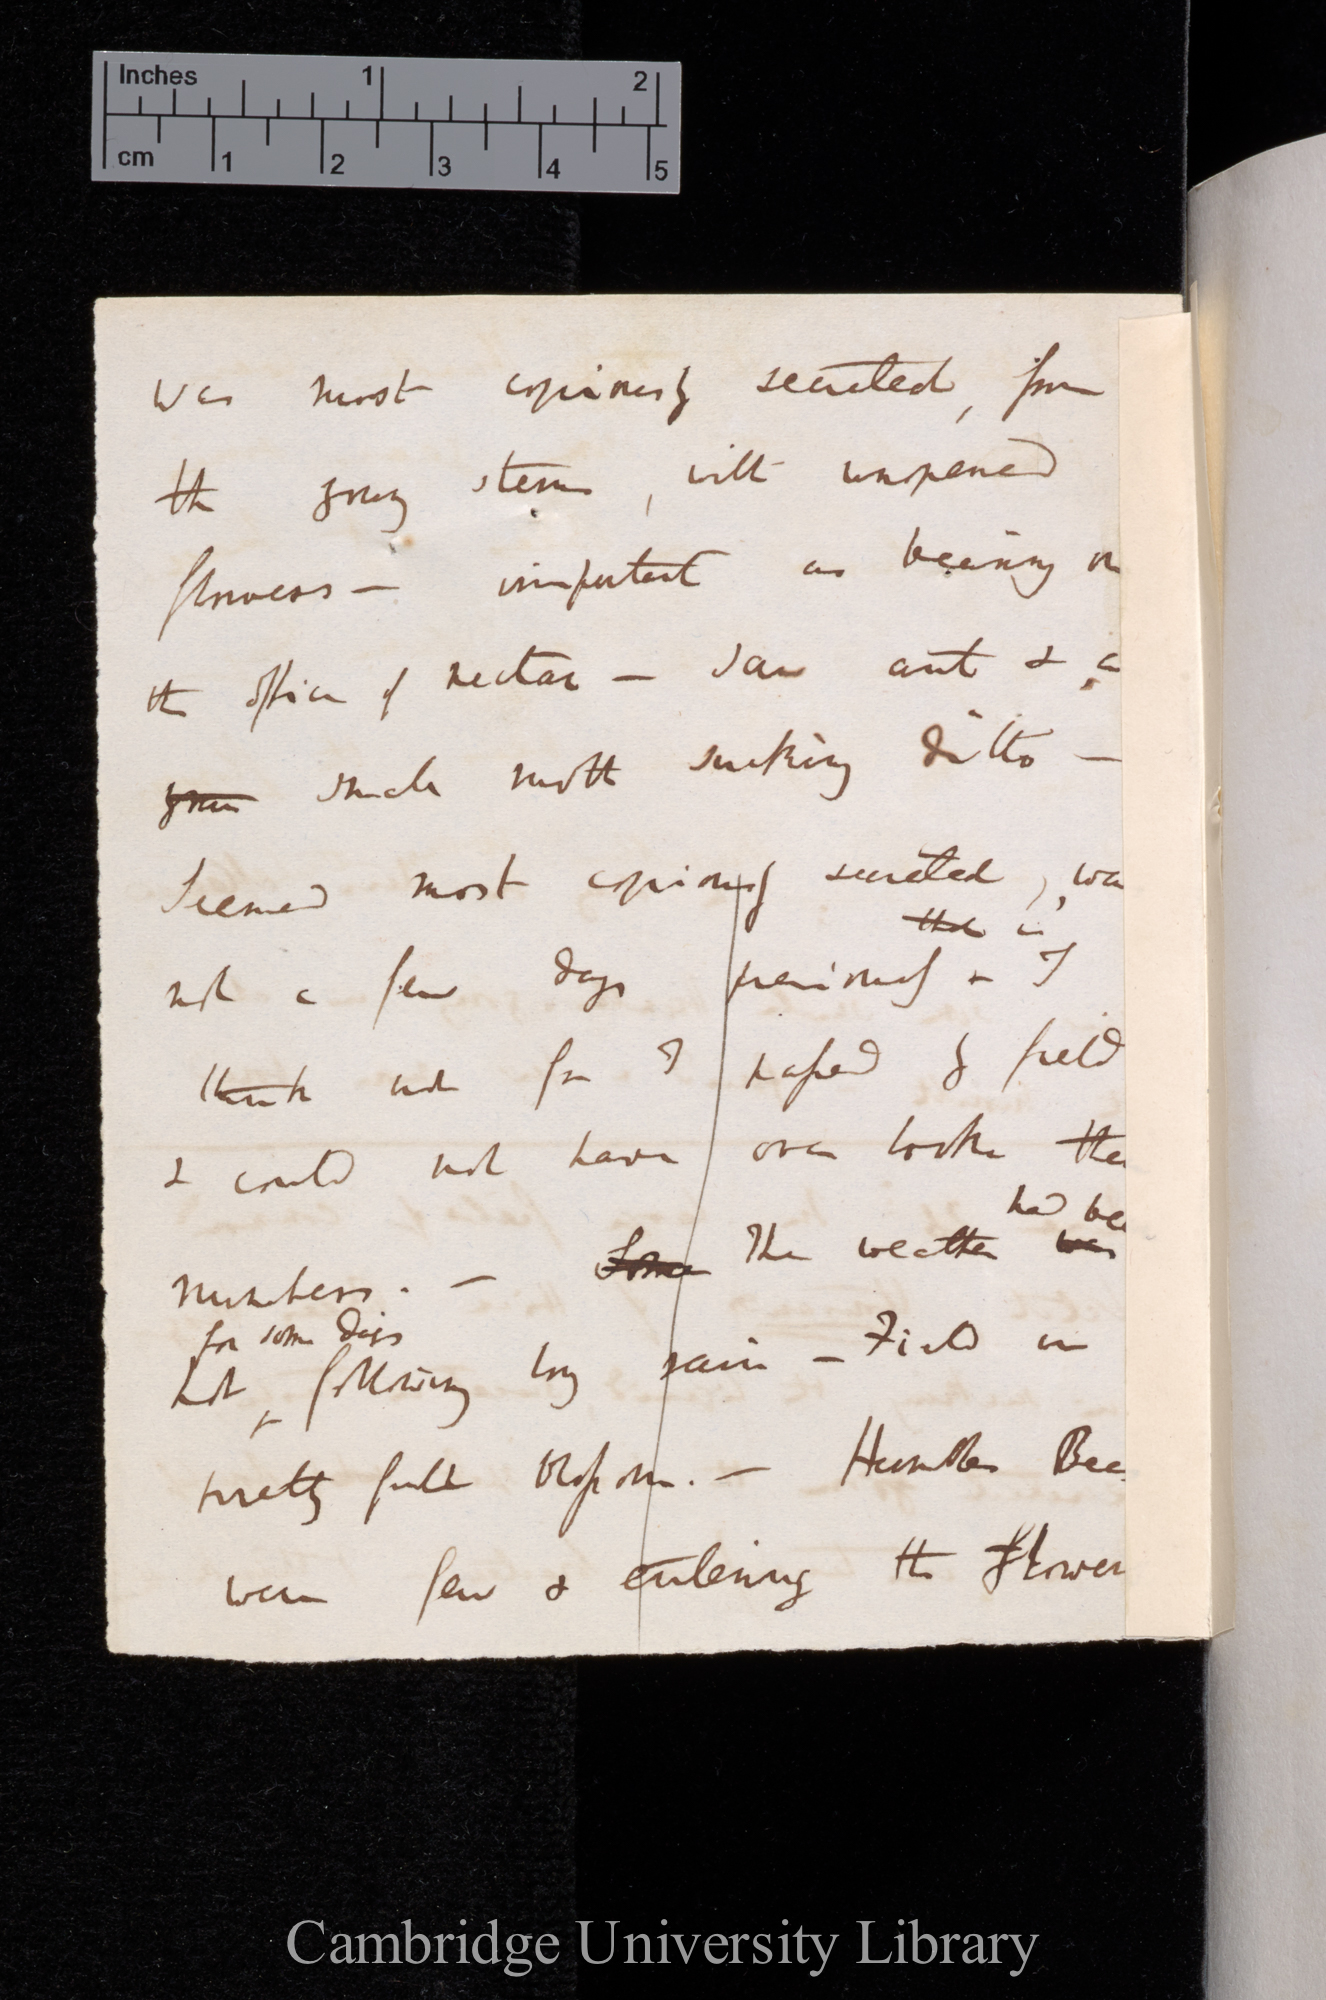 Inches 1 2
cm 1 2 3 4 5
was most copiously secreted, from
the young stems, with unopened
flowers — important as bearing on
the office of nectar — Saw ant & a
small moth sucking ditto —
Seemed most copiously secreted, was
not a few days previously & I
think not for I passed by field
& could not have over looke the
had bee
numbers. — Some The weather was
for some days
hot, following long rain — Field in
pretty full blossom. — Humbles Bee
were few & entering the flower
Cambridge University Library